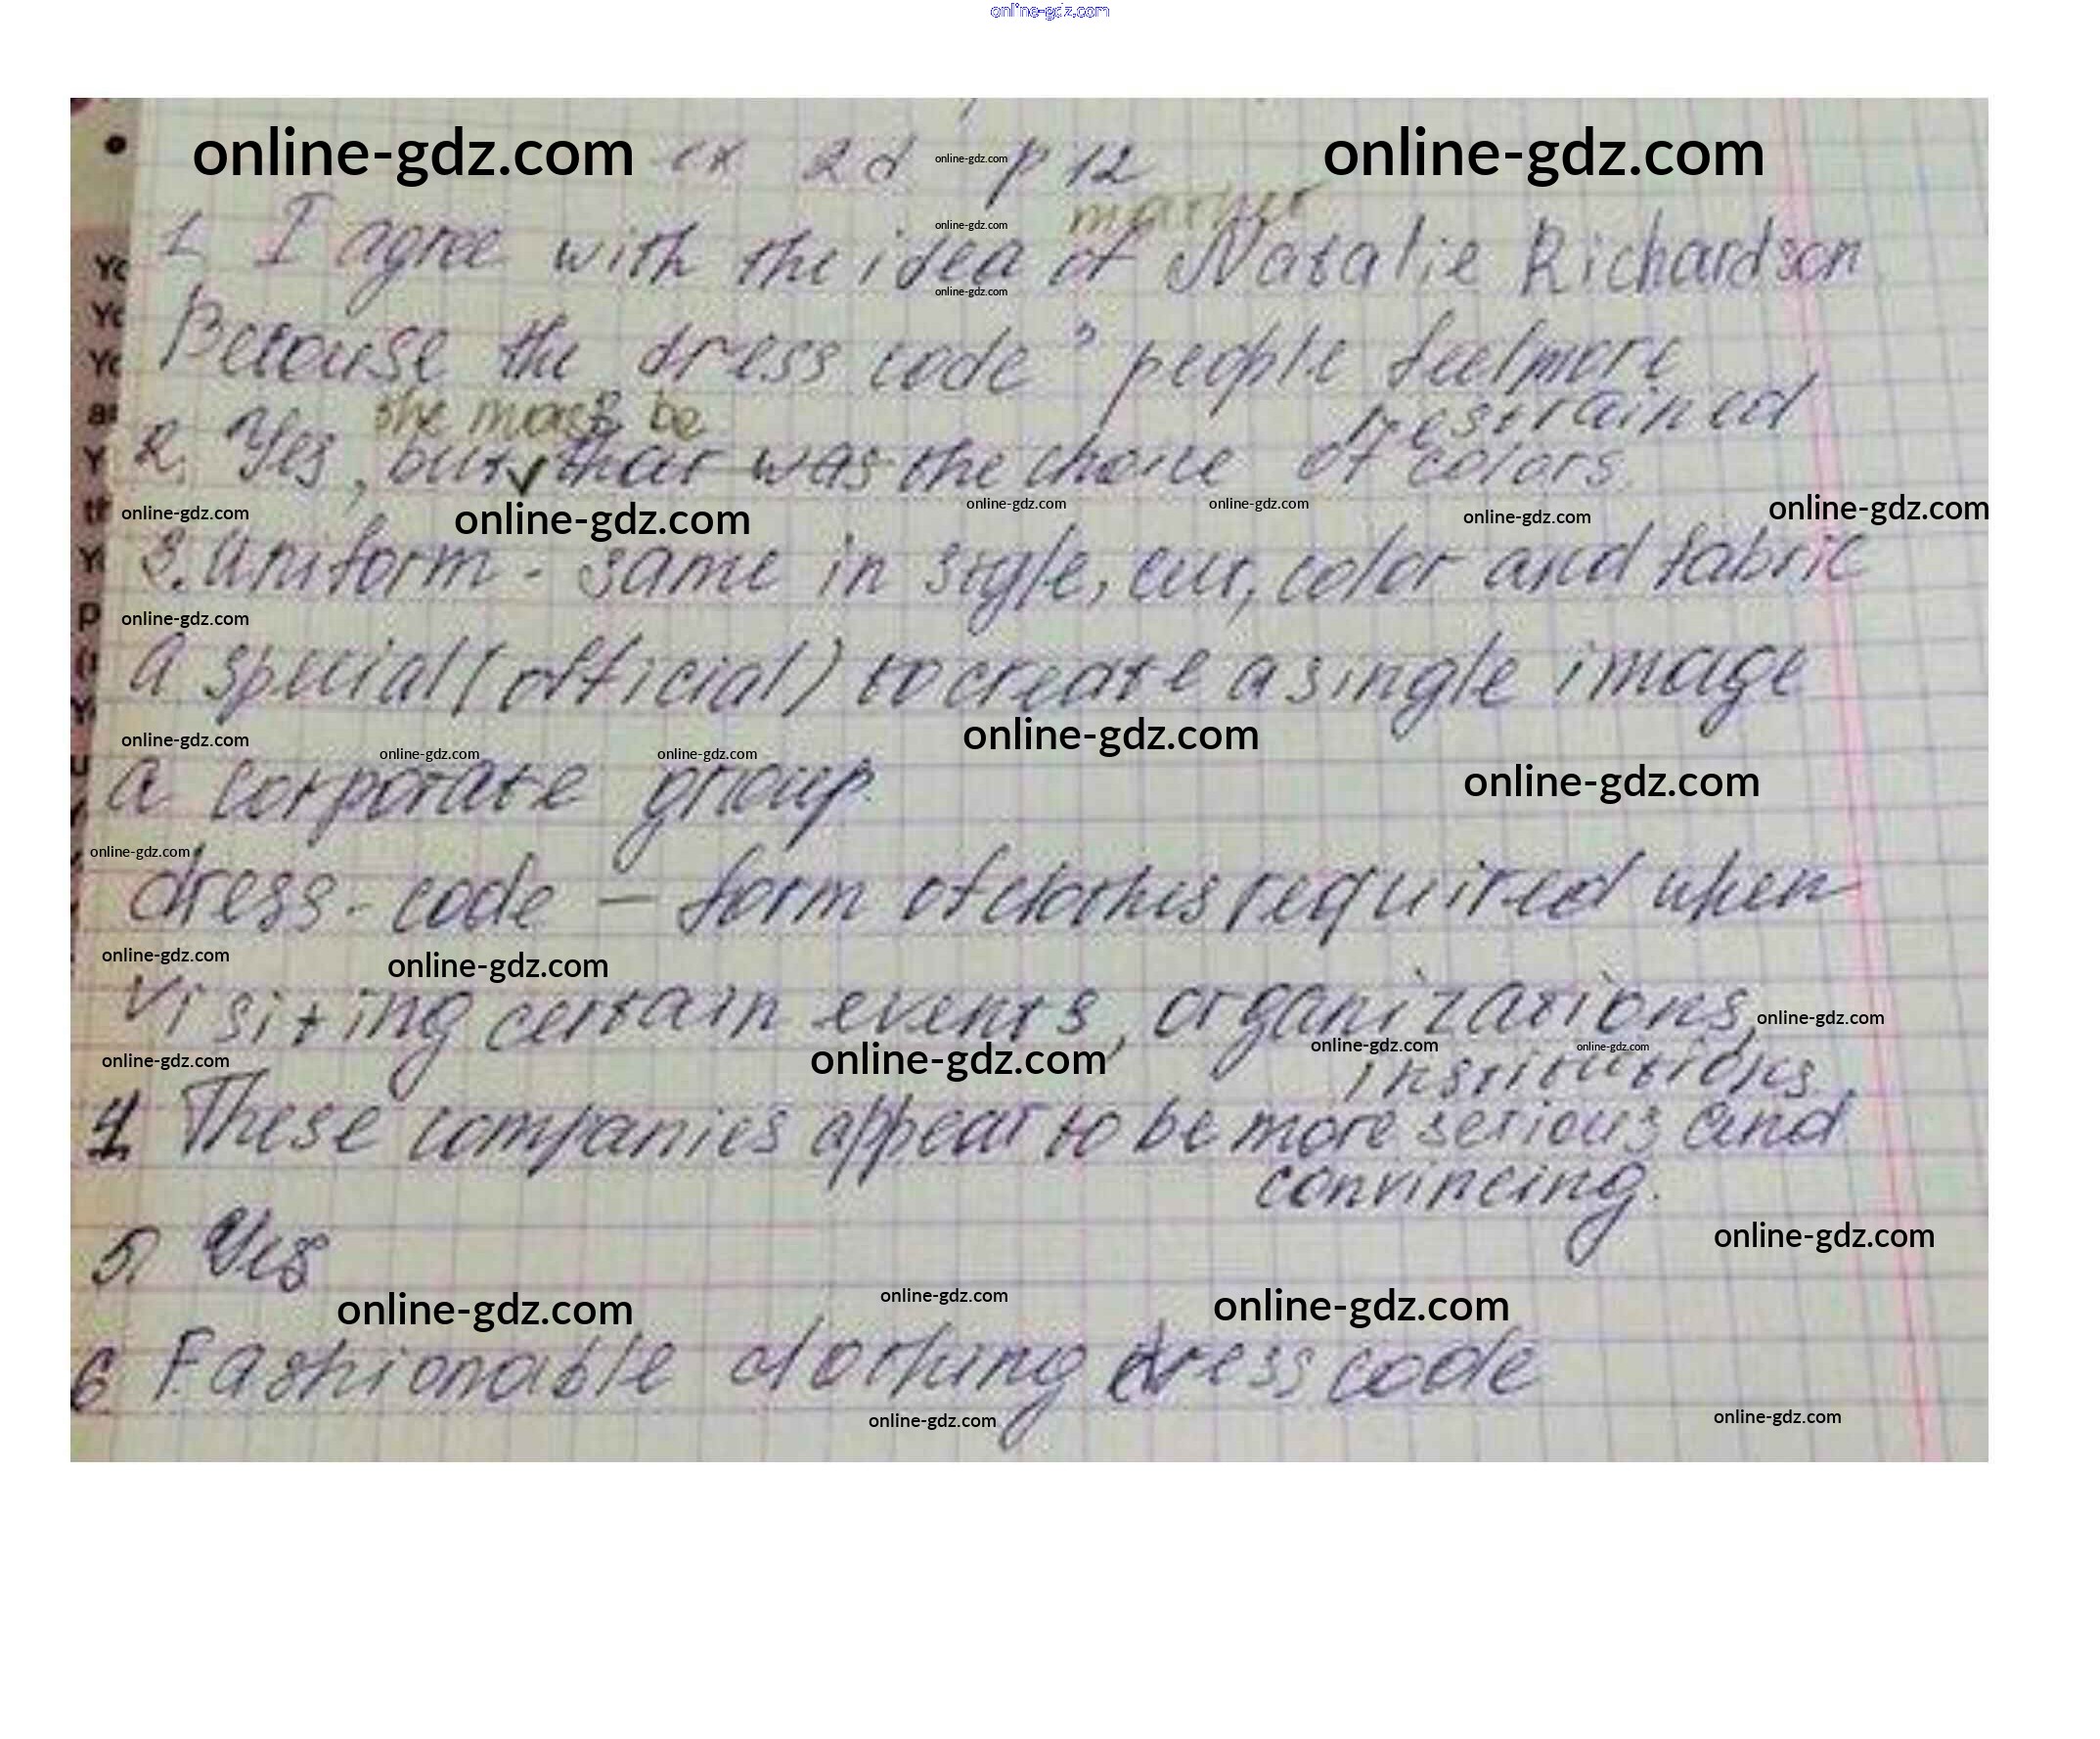 online-gdz.com
online-gdz.com ex 2d online-gdz.com p 12 online-gdz.com
online-gdz.com
1. I agree with the idea of Natalie Richardson
online-gdz.com
Because the dress code people feel more
restrained
she must be
2. Yes, but that was the choice of colors.
online-gdz.com online-gdz.com online-gdz.com online-gdz.com online-gdz.com online-gdz.com
3. Uniform - same in style, cut, color and fabric
online-gdz.com
a special (official) to create a single image
online-gdz.com online-gdz.com online-gdz.com online-gdz.com
a corporate group. online-gdz.com
online-gdz.com
dress-code - form of clothes required when
online-gdz.com online-gdz.com
visiting certain events, organizations, online-gdz.com
online-gdz.com online-gdz.com online-gdz.com online-gdz.com
institutions.
4. These companies appear to be more serious and
convincing.
online-gdz.com
5. Yes
online-gdz.com online-gdz.com online-gdz.com
6 Fashionable clothing dress code
online-gdz.com online-gdz.com